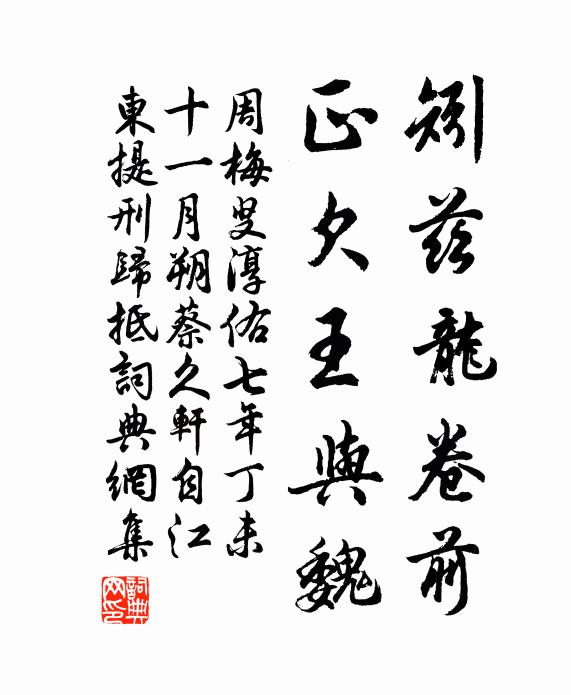 矧茲龍卷前
正欠王與魏
周梅叟淳佑七年丁未
十一月朔蔡久軒自江
東提刑歸抵詞典網集
詞典网印